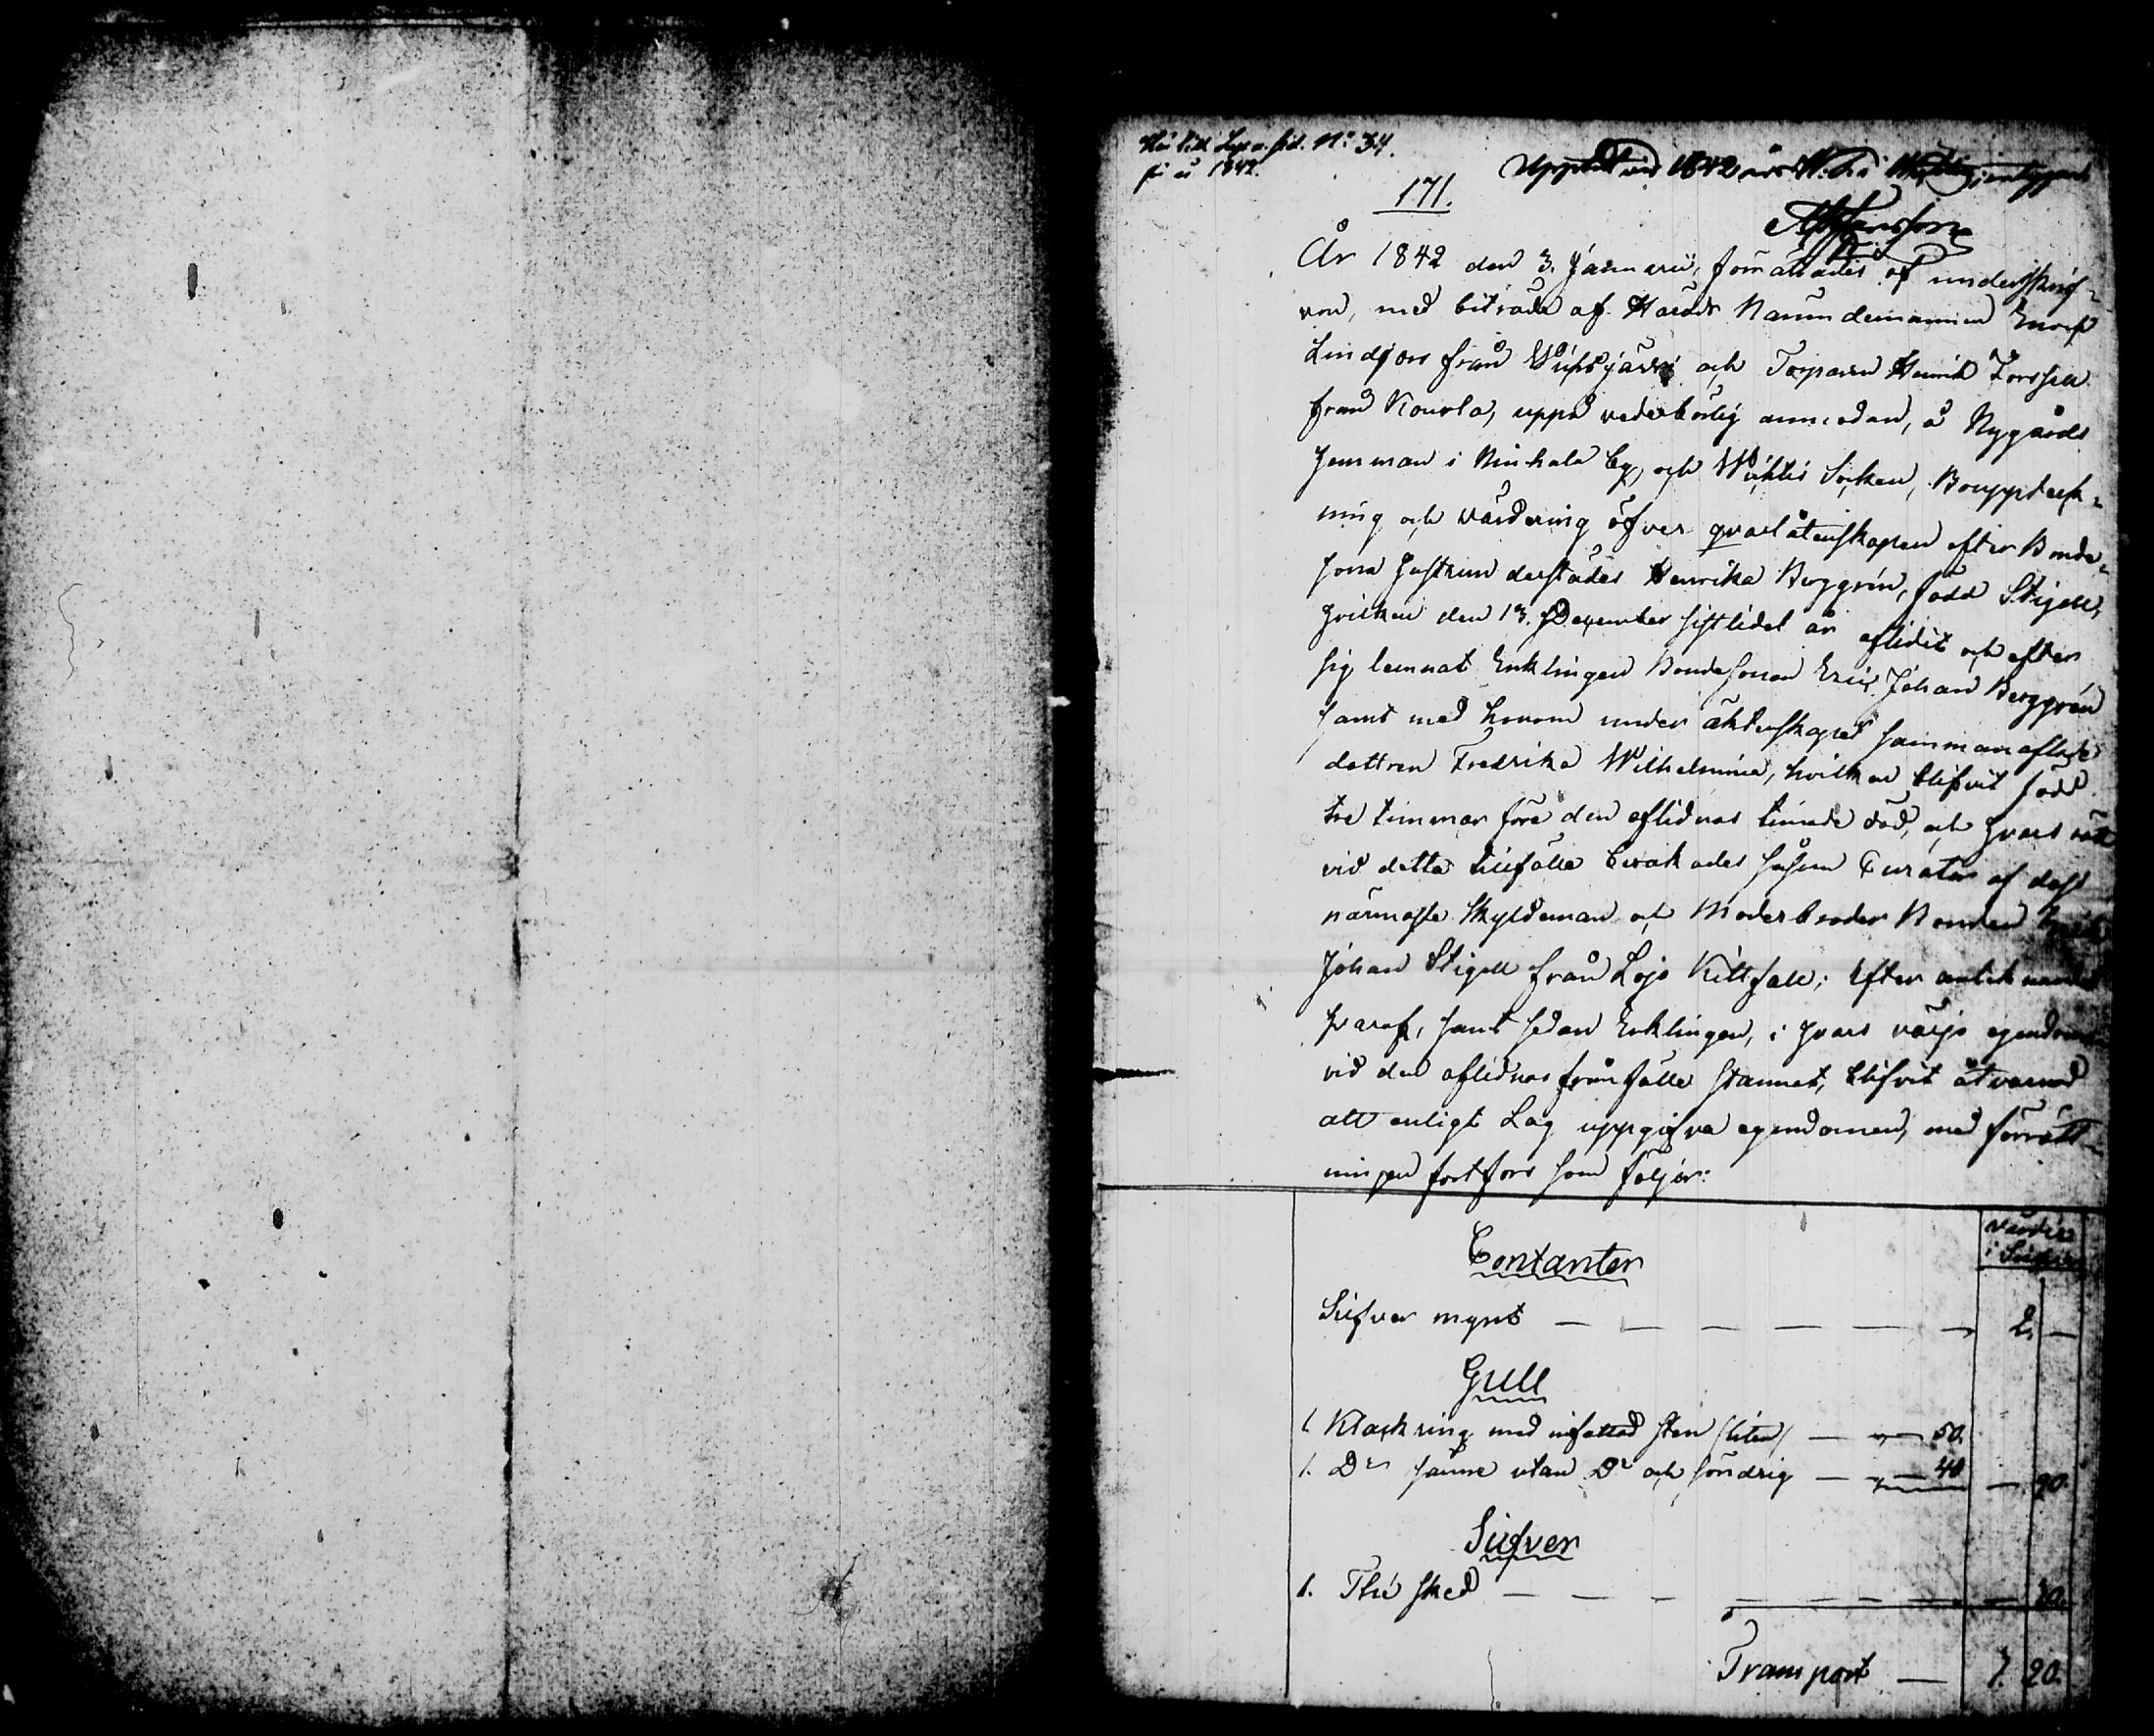 N:o 34.
1842.
171.
År 1842 den 3. Januarii, förrättades af underskrif-
ven, med biträde af Härads Nämndemannen Enoch
Lindfors från Wichtjärvi och Torparen Henrik Forssell
från Kourla, uppå vederbörlig anmodan, å Nygårds
hemman i Niuhala by, och Wichtis Socken, Bouppteck-
ning och värdering öfver qvarlåtenskapen efter Bonde-
sona hustrun derstädes Henrika Berggrén, född Stigell,
hvilken den 13. December sistlidet år aflidit och efter
sig lemnat Enklingen Bondesonen Eric Johan Berggrén
samt med honom under äktenskapet sammanaflade
dottren Fredrika Wilhelmina, hvilken blifvit född
tre timmar före den aflidnas timade död, och hvars rätt
vid detta tillfälle bevakades såsom Curator af dess
närmaste Skyldeman och Moderbroder Bonden
Johan Stigell från Lojo Kittfall; Efter antecknandet
hvaraf, samt sedan Enklingen, i hvars värjo egendomen
vid den aflidnas frånfälle stannat, blifvit åtvarnad
att enligt Lag uppgifva egendomen, med förrätt-
ningen fortfors som följer:
Värde
i Silfver
Contanter
Silfver mynt — — — — — — 2. —
Gull
1. Klackring med infattad sten /liten/ — „ — 50.
1. D:o sämre utan D:o och söndrig — „ — 40 — 90.
Silfver
1. Thé sked — — — — — — — — 30.
Transport — 3. 20.